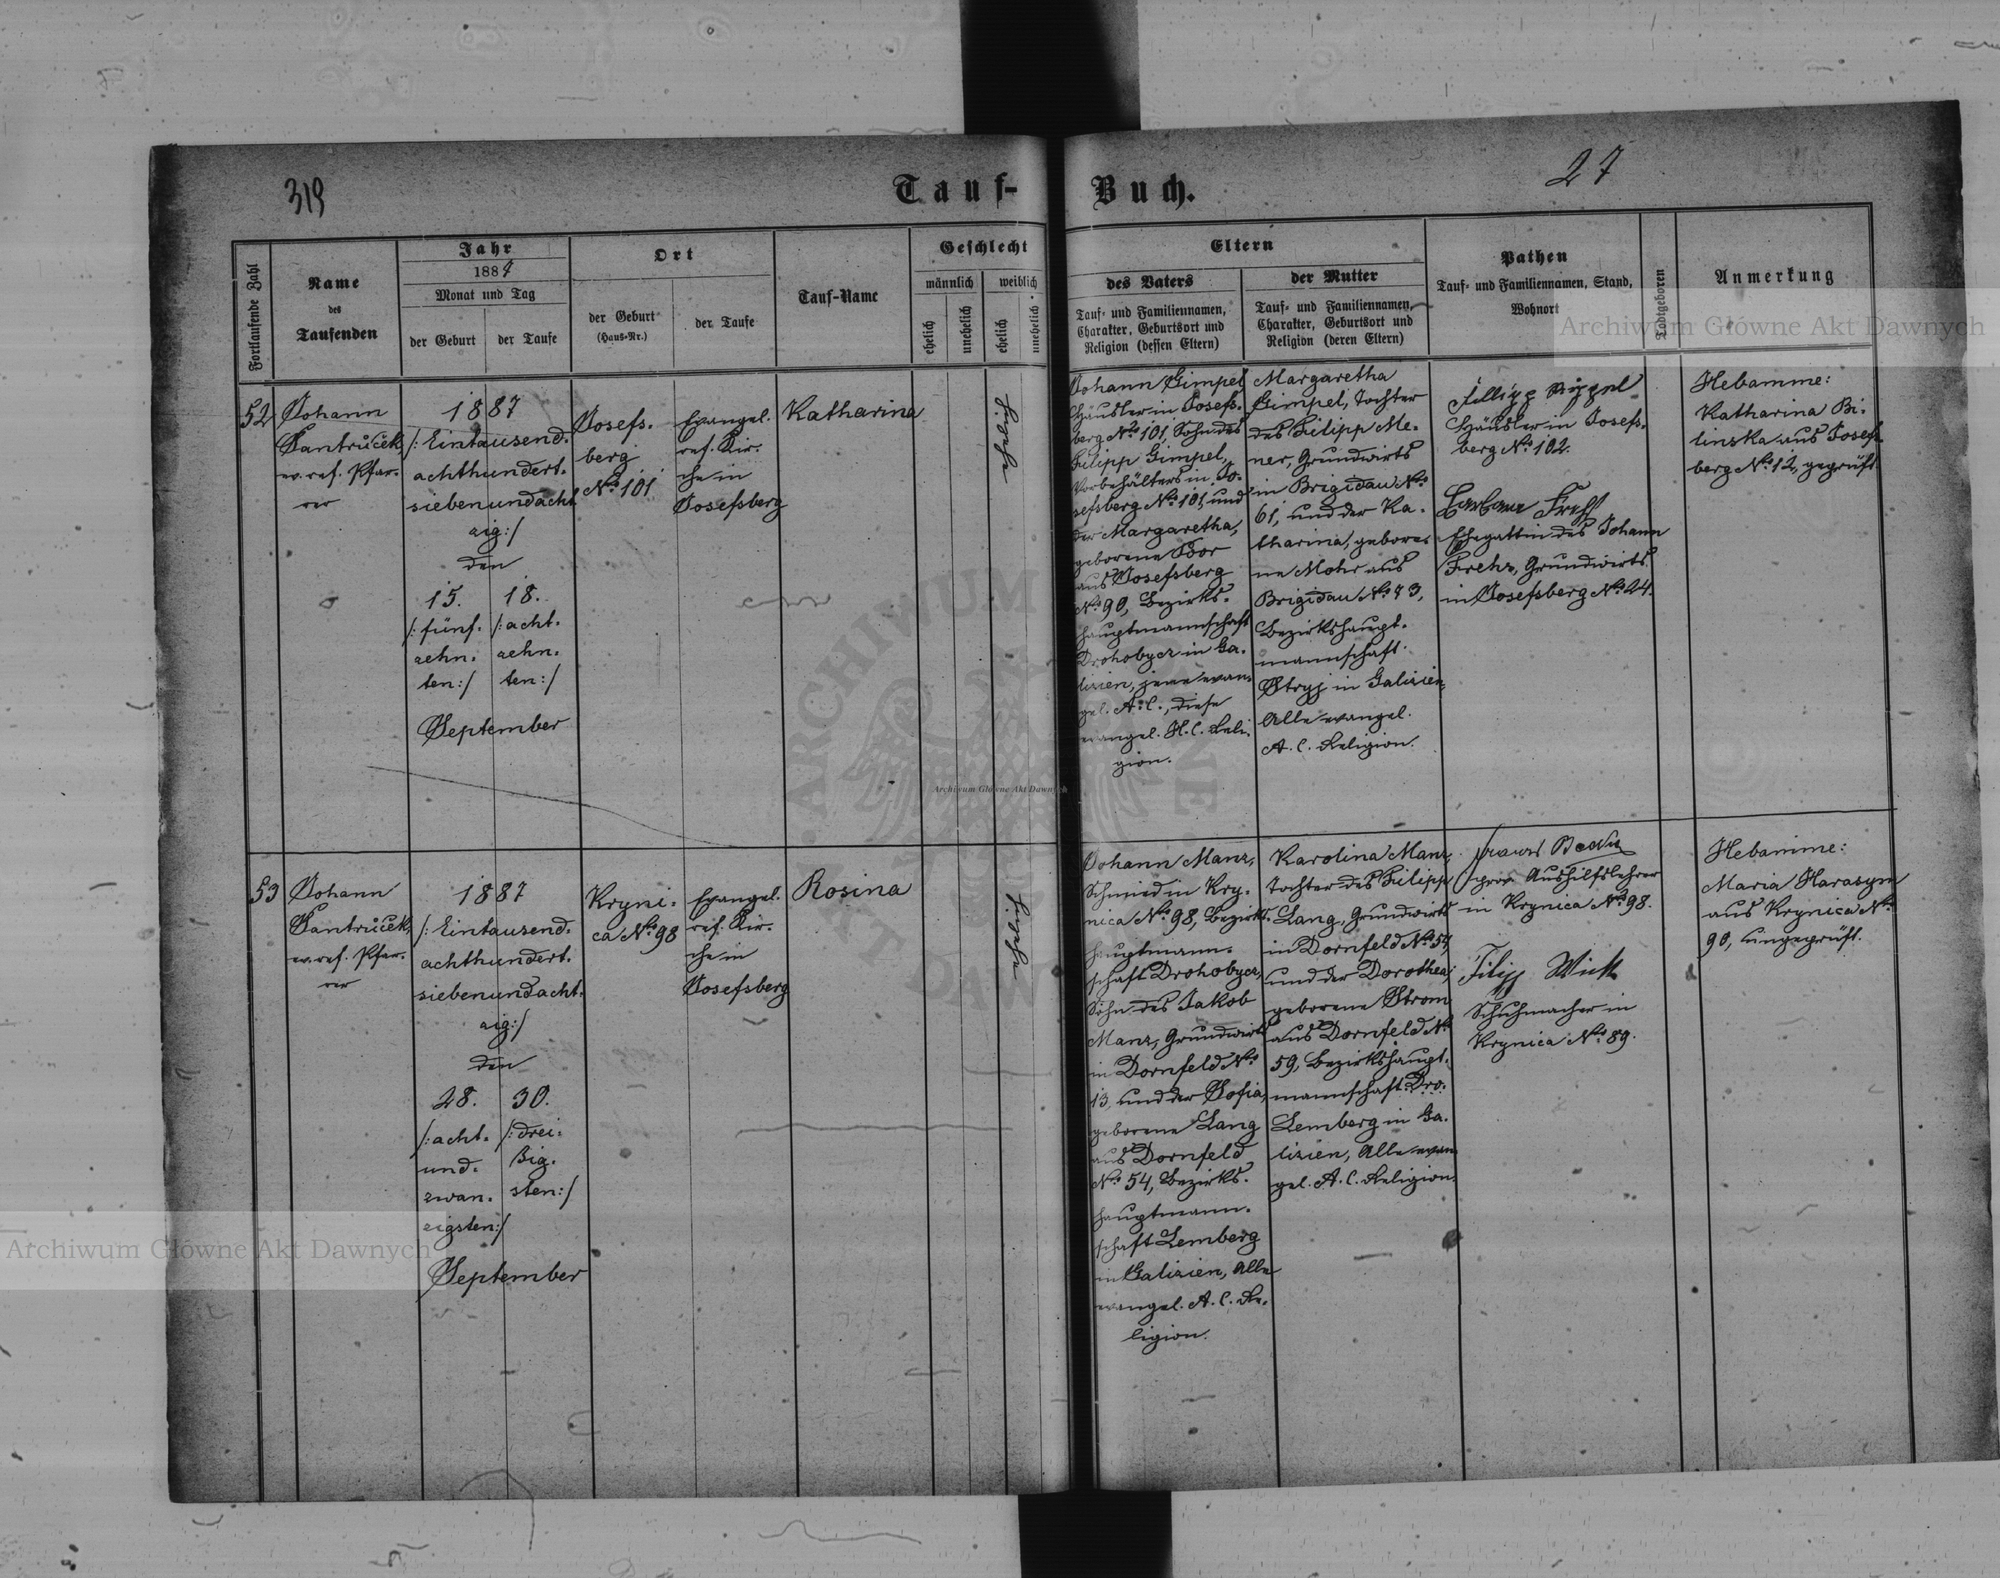 319
27
Tauf-Buch.
Fortlaufende Zahl
Name
des
Taufenden
Jahr
1887
Monat und Tag
der Geburt
der Taufe
Ort
der Geburt
(Haus-Nr.)
der Taufe
Tauf-Name
Geschlecht
männlich
weiblich
ehelich
unehelich
ehelich
unehelich
Eltern
des Vaters
Tauf- und Familiennamen,
Charakter, Geburtsort und
Religion (dessen Eltern)
der Mutter
Tauf- und Familiennamen,
Charakter, Geburtsort und
Religion (deren Eltern)
Pathen
Tauf- und Familiennamen, Stand,
Wohnort
Todtgeboren
Anmerkung
52
Johann
Jantrůček,
ev. ref. Pfar-
rer
1887
/: Eintausend-
achthundert-
siebenundacht
zig :/
den
15.
/: fünf-
zehn-
ten :/
18.
/: acht-
zehn-
ten :/
September
Josefs-
berg
No 101
Evangel.
ref. Kir-
che in
Josefsberg
Katharina
Johann Gimpel
Häusler in Josefs-
berg No 101, Sohn des
Filipp Gimpel,
Vorbehälters in Jo-
sefsberg No 101, und
der Margaretha,
geborene
aus Josefsberg
No 90, Bezirks-
hauptmannschaft
Drohobycz in Ga-
lizien, jene evan-
gel. A. C., diese
evangel. H. C. Reli-
gion.
Margaretha
Gimpel, Tochter
des Filipp Me-
ner, Grundwirts
in Brigidau No
61, und der Ka-
tharina, gebore-
ne Mohr aus
Brigidau No 73,
Bezirkshaupt-
mannschaft
Stryj in Galizien,
Alle evangel.
A. C. Religion.
Fillipp
Häusler in Josefs-
berg No 102.
Ehegattin des Johann
Grundwirts
in Josefsberg No 24.
Hebamme:
Katharina Bi-
linska aus Josefs-
berg No 12, geprüft
53
Johann
Jantrůček,
ev. ref. Pfar-
rer
1887
/: Eintausend-
achthundert-
siebenundacht-
zig :/
den
28.
/: acht-
und-
zwan-
zigsten :/
30.
/: drei-
ßig-
sten :/
September
Kryni-
ca No 98
Evangel.
ref. Kir-
che in
Josefsberg
Rosina
Johann Manz,
Schmied in Kry-
nica No 98, Bezirks-
hauptmann-
schaft Drohobycz,
Sohn des Jakob
Manz, Grundwirts
in Dornfeld No
13, und der Sofia,
geborene Lang
aus Dornfeld
No 54, Bezirks-
hauptmann-
schaft Lemberg
in Galizien, Alle
evangel. A. C. Re-
ligion.
Karolina Manz,
Tochter des Filipp
Lang, Grundwirts
in Dornfeld No 54,
und der Dorothea,
geborene Strom
aus Dornfeld No
59, Bezirkshaupt-
mannschaft
Lemberg in Ga-
lizien, Alle evan-
gel. A. C. Religion.
prov. Aushilfslehrer
in Krynica No 98.
Filipp
Schuhmacher in
Krynica No 89.
Hebamme:
Maria Harasym
aus Krynica No
90, ungeprüft.
Archiwum Główne Akt Dawnych
Archiwum Główne Akt Dawnych
Archiwum Główne Akt Dawnych